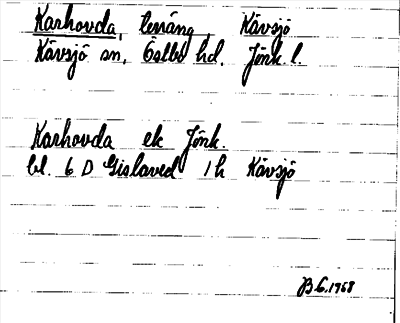 Karhovda, terräng Kävsjö
Kävsjö sn, Östbo hd, Jönk. l.
Karhovda ek Jönk.
bl. 6 D Gislaved 1 h Kävsjö
B.G. 1968